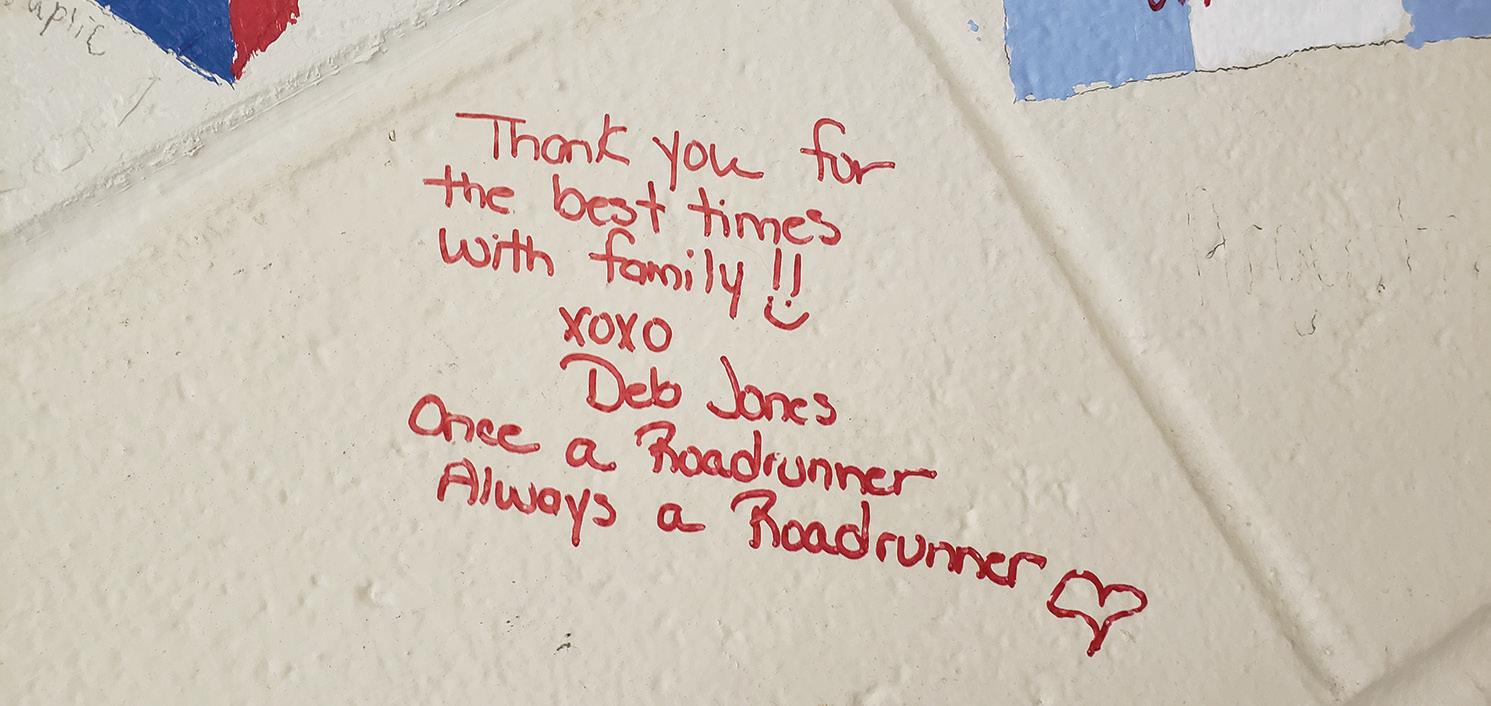 Thank you for
the best times
with family !!
xoxo
Deb Jones
Once a Roadrunner
Always a Roadrunner